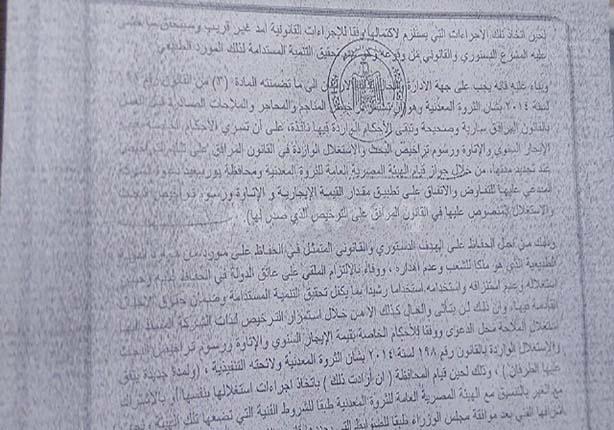 لحين اتخاذ تلك الاجراءات التي يستلزم لاكتمالها وفقا للإجراءات القانونية أمد غير قريب وسيتحقق
عليه المشرع الدستوري والقانوني من تحقيق التنمية المستدامة لذلك المورد الطبيعي
وبناء عليه فانه يجب على جهة الادارة الى ما تضمنته المادة (٣) من القانون رقم
لسنة ٢٠١٤ بشأن الثروة المعدنية المناجم والمحاجر والملاحات الصادرة قبل العمل
بالقانون المرافق سارية وصحيحة وتبقى الأحكام الواردة فيها نافذة، على أن تسري الأحكام الخاصة
الإيجار السنوي والإتاوة ورسوم تراخيص البحث والاستغلال الواردة في القانون المرافق على
عند تجديد مدتها، من خلال جواز قيام الهيئة المصرية العامة للثروة المعدنية ومحافظة بورسعيد دعوة الشركة
المدعى عليها للتفاوض والاتفاق على تطبيق مقدار القيمة الإيجارية و الإتاوة ورسوم تراخيص البحث
والاستغلال المنصوص عليها في القانون المرافق على الترخيص الذي صدر لها)
وذلك من أجل الحفاظ على الهدف الدستوري والقانوني المتمثل في الحفاظ على مورد من
الطبيعية الذي هو ملكا للشعب وعدم اهداره، ووفاء بالالتزام الملقى على عاتق الدولة في الحفاظ عليه وحسن
استغلاله وعدم استنزافه واستخدامه استخداما رشيدا بما يكفل تحقيق التنمية المستدامة وضمان حقوق الاجيال
القادمة فيها، وان ذلك لن يتأتى والحال كذلك الا من خلال استمرار الترخيص لذات الشركة
استغلال الملاحة محل الدعوى ووفقا للأحكام الخاصة بقيمة الإيجار السنوي والإتاوة ورسوم تراخيص البحث
والاستغلال الواردة بالقانون رقم ١٩٨ لسنة ٢٠١٤ بشأن الثروة المعدنية ولائحته التنفيذية ، (ولمدة جديدة يتفق
عليها الطرفان) ، وذلك لحين قيام المحافظة ( ان أرادت ذلك ) باتخاذ اجراءات استغلالها بنفسها أو بالاشتراك
مع الغير بالتنسيق مع الهيئة المصرية العامة للثروة المعدنية طبقا للشروط الفنية التي تضعها تلك الهيئة ، وتحت
اشرافها الفني بعد موافقة مجلس الوزراء طبقا